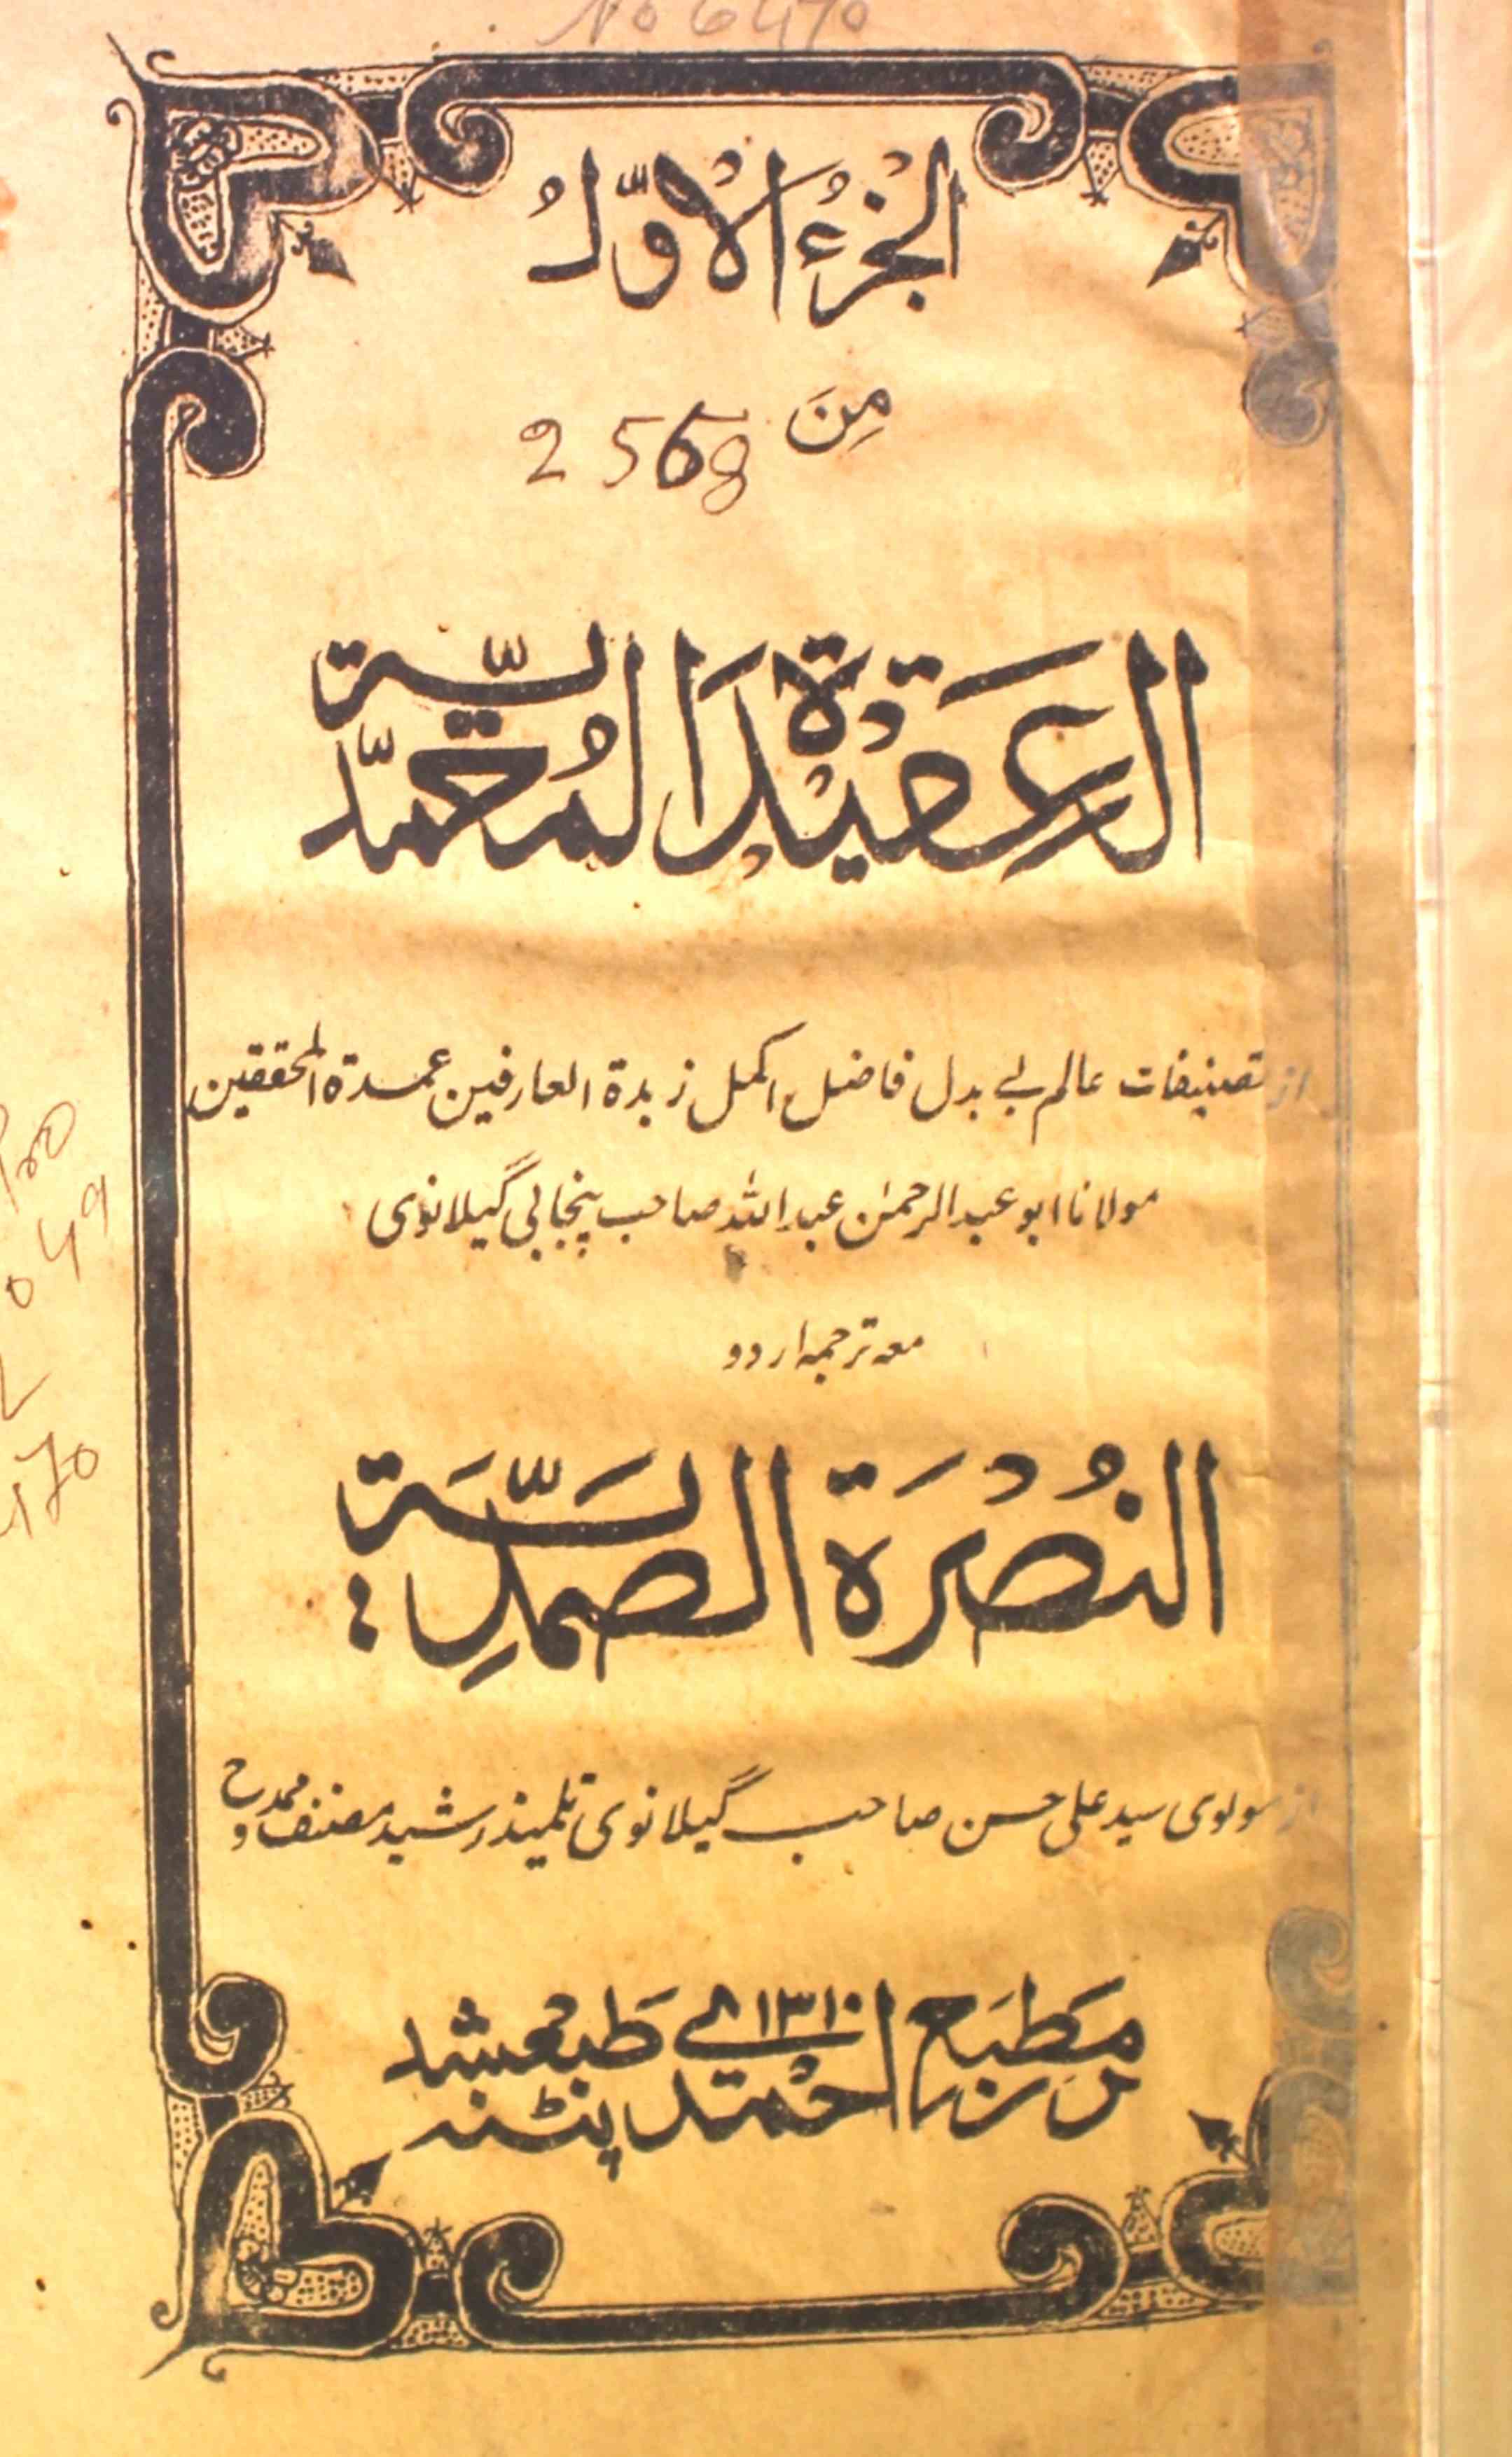 No 6470
الجُزْءُ الْاَوَّلُ
مِنَ
2568
العَقِيْدَةُ الْمُحَمَّدِيَّة
از تصنیفات عالم بے بدل فاضل اکمل زبدة العارفین عمدة المحققین
مولانا ابو عبد الرحمٰن عبد اللّٰہ صاحب پنجابی گیلانوی
معہ ترجمہ اردو
النُصْرَة الصَمَدِيَّة
از مولوی سید علی حسن صاحب گیلانوی تلمیذ رشید مصنف ممدوح
۱۳۱۰ھ
در مطبع احمدی پٹنہ طبع شد